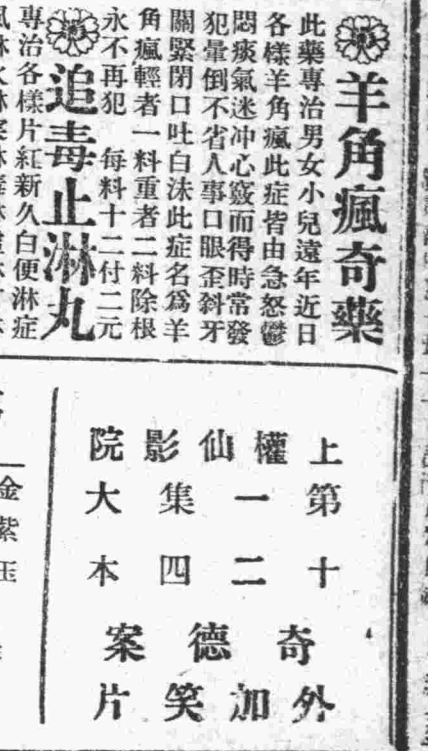 羊角瘋奇藥
此藥專治男女小兒遠年近日
各樣羊角瘋此症皆由急怒鬱
悶痰氣迷冲心竅而得時常發
犯暈倒不省人事口眼歪斜牙
關緊閉口吐白沫此症名爲羊
角瘋輕者一料重者二料除根
永不再犯 每料十二付二元
追毒止淋丸
專治各樣片紅新久白便淋症
上權仙影院
第十一二集四大本
奇德案
外加笑片
金紫玉